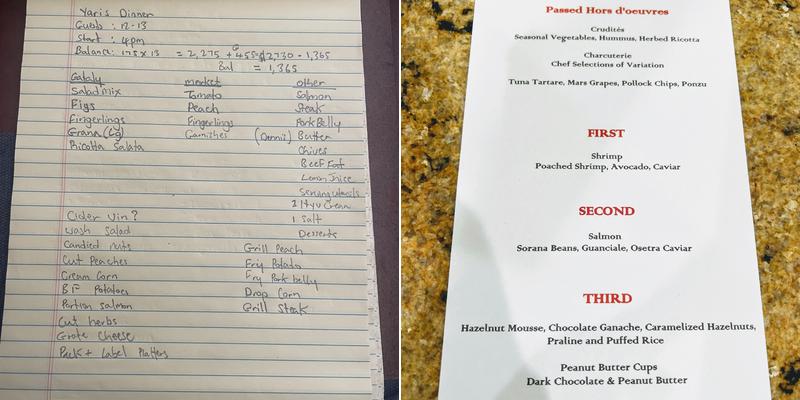 Yaris Dinner
Guests : 12-13
Start : 4pm
Balance: 175 x 13 = 2,275 + 455 = $2730 - 1,365
Bal = 1,365
Eataly
Salad mix
Figs
Fingerlings
Grana (Lg)
Ricotta Salata
market
Tomato
Peach
Fingerlings
Garnishes
other
Salmon
Steak
Pork Belly
Butter
Chives
Beef Fat
Lemon Juice
Serving utensils
Cream
1 Salt
Desserts
Cider Vin?
Wash Salad
Candied nuts
Cut Peaches
Cream Corn
BF Potatoes
Portion Salmon
Cut herbs
Grate Cheese
Pack + Label Platters
Grill Peach
Fry Potato
Fry Pork belly
Drop Corn
Grill Steak
Passed Hors d'oeuvres
Crudités
Seasonal Vegetables, Hummus, Herbed Ricotta
Charcuterie
Chef Selections of Variation
Tuna Tartare, Mars Grapes, Pollock Chips, Ponzu
FIRST
Shrimp
Poached Shrimp, Avocado, Caviar
SECOND
Salmon
Sorana Beans, Guanciale, Osetra Caviar
THIRD
Hazelnut Mousse, Chocolate Ganache, Caramelized Hazelnuts,
Praline and Puffed Rice
Peanut Butter Cups
Dark Chocolate & Peanut Butter